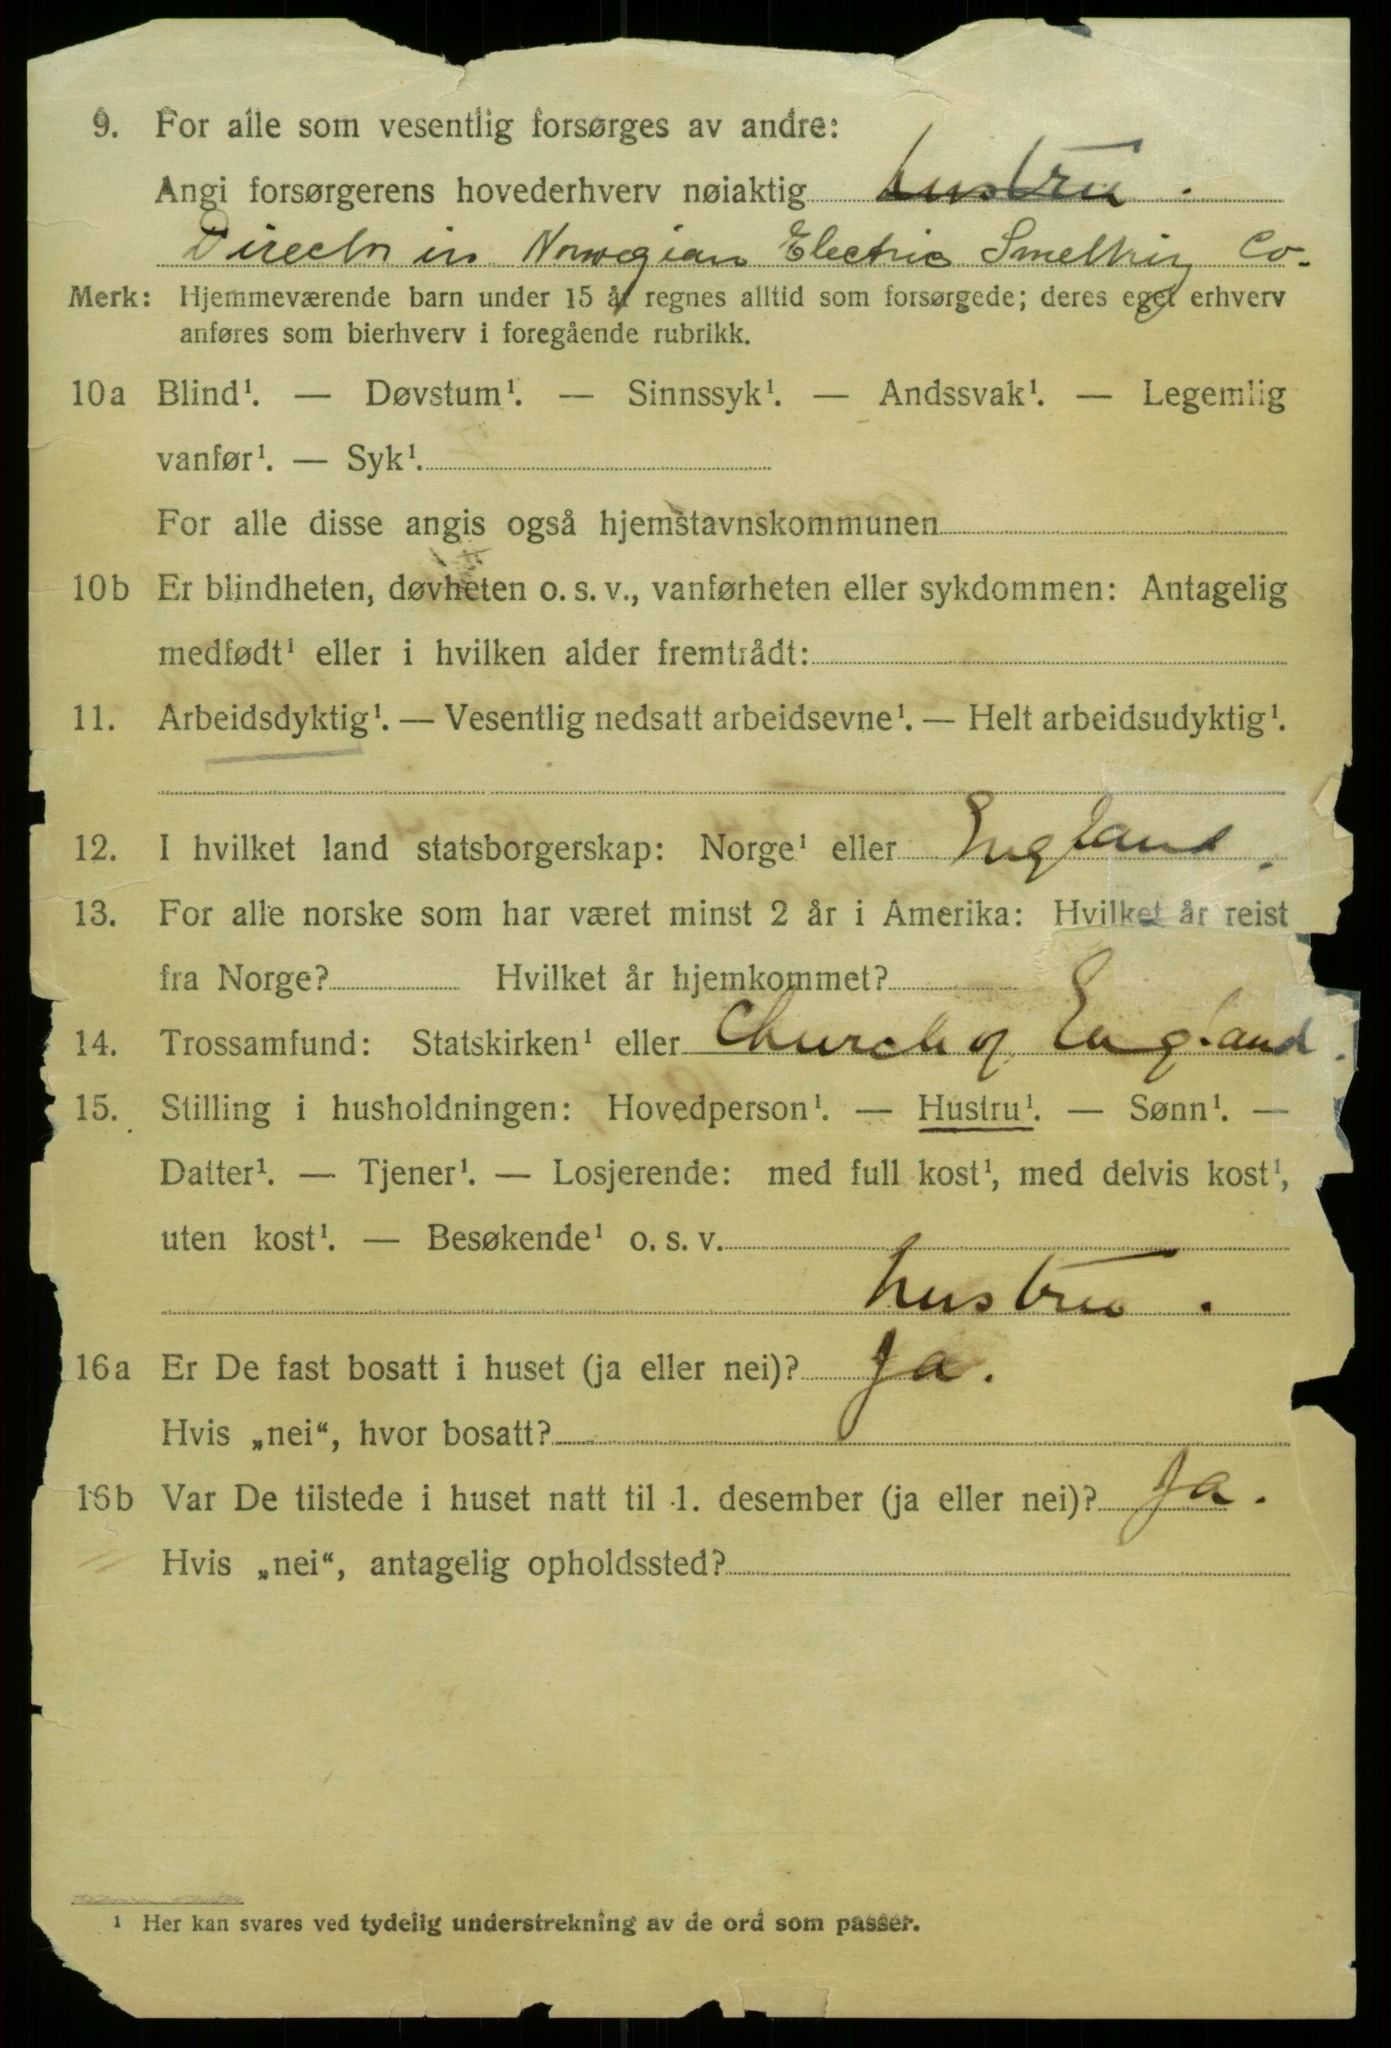 9. For alle som vesentlig forsørges av andre:
Angi forsørgerens hovederhverv nøiaktig hustru.
Director in Norwegian Electric Smelting Co.
Merk: Hjemmeværende barn under 15 år regnes alltid som forsørgede; deres eget erhverv
anføres som bierhverv i foregående rubrikk.
10a Blind¹. — Døvstum¹. — Sinnssyk¹. — Andssvak¹. — Legemlig
vanfør¹. — Syk¹.
For alle disse angis også hjemstavnskommunen
10b Er blindheten, døvheten o. s. v., vanførheten eller sykdommen: Antagelig
medfødt¹ eller i hvilken alder fremtrådt:
11. Arbeidsdyktig¹. — Vesentlig nedsatt arbeidsevne¹. — Helt arbeidsudyktig¹.
12. I hvilket land statsborgerskap: Norge¹ eller England.
13. For alle norske som har været minst 2 år i Amerika: Hvilket år reist
fra Norge? Hvilket år hjemkommet?
14. Trossamfund: Statskirken¹ eller Church of England.
15. Stilling i husholdningen: Hovedperson¹. — Hustru¹. — Sønn¹. —
Datter¹. — Tjener¹. — Losjerende: med full kost¹, med delvis kost¹,
uten kost¹. — Besøkende¹ o. s. v.
hustru.
16a Er De fast bosatt i huset (ja eller nei)? Ja.
Hvis „nei“, hvor bosatt?
16b Var De tilstede i huset natt til 1. desember (ja eller nei)? Ja.
Hvis „nei“, antagelig opholdssted?
¹ Her kan svares ved tydelig understrekning av de ord som passer.